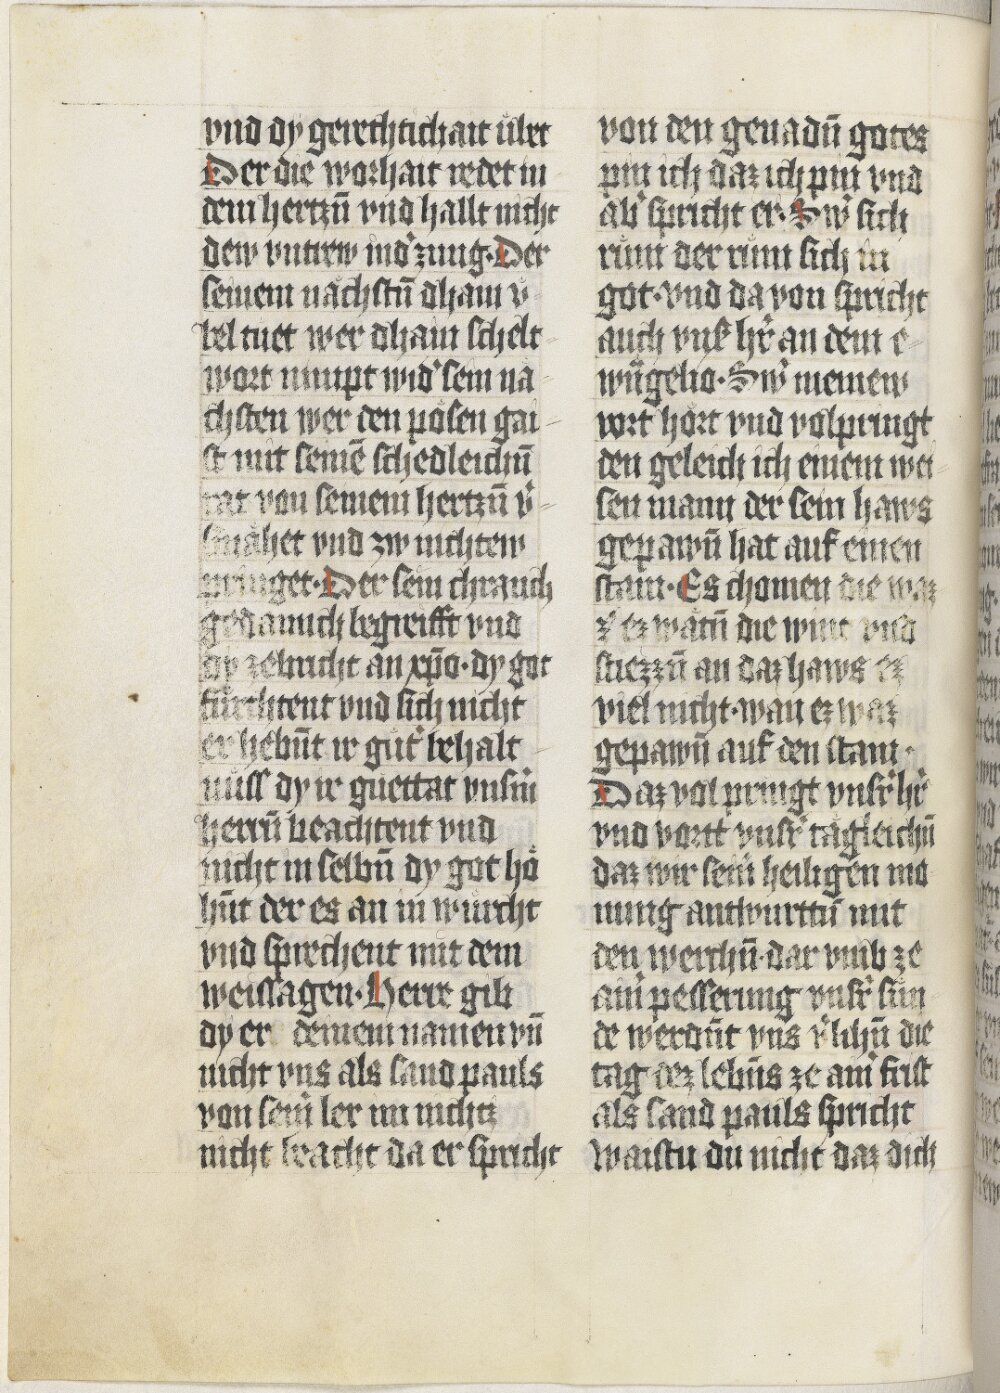 vnd dy gerechtichait ůbet
Der die worhait redet in
dem hertzn̄ vnd hallt nicht
dew vntrew ind' zung· Der
seinem nächstn̄ dhain v-
bel tuet wer dhain schelt-
wort nimpt wid' sein nä
chsten wer den pösen gai-
st mit seinē schedleichn̄
rat von seinem hertzn̄ v'-
smähet vnd zw nichtew
pringet· Der sein chranch
gedannch begreifft vnd
dy zebricht an xp̄o· dy got
fürchtent vnd sich nicht
erhebn̄t ir gůt' behalt-
nuss dy ir guettat vns'm
herrn̄ beachtent vnd
nicht in selbn̄ dy got hö
hn̄t der es an in würcht
vnd sprechent mit dem
weissagen· Herre gib
dy er deinem namen vn̄
nicht vns als sand pauls
von sein' ler im nichtz
nicht beacht da er spricht
von den genadn̄ gotes
pin ich daz ich pin vnd
ab' spricht er· Sw' sich
rům der rům sich in
got· vnd da von spricht
auch vns' h'r an dem e-
wn̄gelio· Sw' meinew
wort hört vnd volpringt
den geleich ich einem wei-
sen mann der sein haws
gepawn̄ hat auf einen
stain· Es chomen die waz
z' ez wätn̄ die wint vnd
stiezzn̄ an daz haws ez
viel nicht· wan ez waz
gepawn̄ auf den stain·
Daz volpringt vns'r h'r
vnd vortt' vns'r tägleichn̄
daz wir sein' heiligen mā
nung antwurttn̄ mit
den werchn̄· dar vmb ze
ain' pesserung vns'r sün
de werdn̄t vns v'lihn̄ die
tag dez lebn̄s ze ain' frist
als sand pauls spricht
Waistu du nicht daz dich